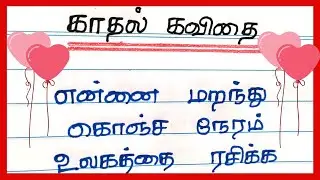 காதல் கவிதை
என்னை மறந்து
கொஞ்ச நேரம்
உலகத்தை ரசிக்க